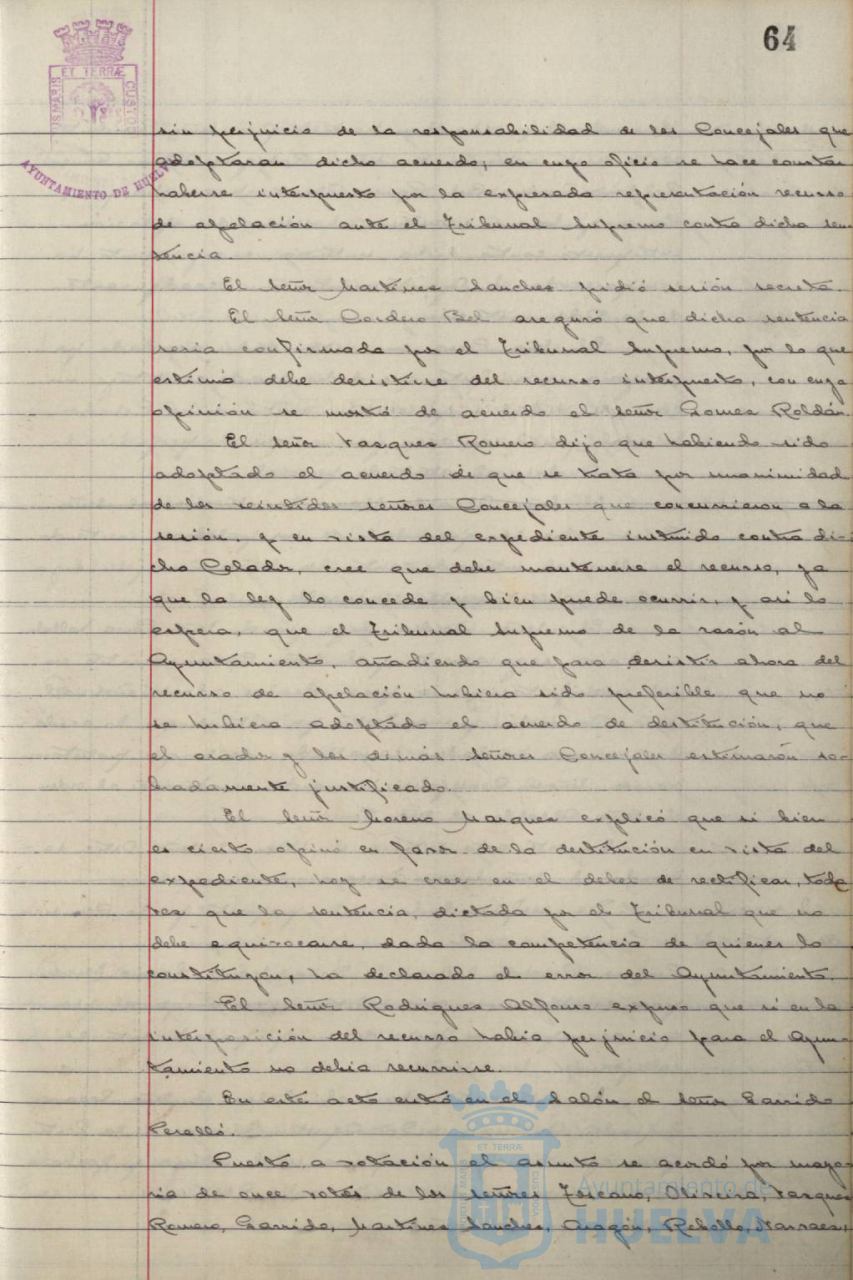 64
ET TERRÆ
US MARIS
CUSTOD
AYUNTAMIENTO DE HUELVA
sin perjuicio de la responsabilidad de los Concejales que
adoptaran dicho acuerdo; en cuyo oficio se hace constar
haberse interpuesto por la expresada representación recurso
de apelación ante el Tribunal Supremo contra dicha sen-
tencia.
El señor Martinez Sanchez pidió sesión secreta.
El señor Cordero Bel aseguró que dicha sentencia
seria confirmada por el Tribunal Supremo, por lo que
estima debe desistirse del recurso interpuesto, con cuya
opinión se mostró de acuerdo el señor Gomez Roldán.
El señor Vazquez Romero dijo que habiendo sido
adoptado el acuerdo de que se trata por unanimidad
de los veintidos señores Concejales que concurrieron a la
sesión, y en vista del expediente instruido contra di-
cho Celador, cree que debe mantenerse el recurso, ya
que la ley lo concede y bien puede ocurrir, y asi lo
espera, que el Tribunal Supremo de la razón al
Ayuntamiento, añadiendo que para desistir ahora del
recurso de apelación hubiera sido preferible que no
se hubiera adoptado el acuerdo de destitución, que
el orador y los demás señores Concejales estimaron so-
bradamente justificado.
El señor Moreno Marquez explicó que si bien
es cierto opinó en favor de la destitución en vista del
expediente, hoy se cree en el deber de rectificar, toda
vez que la sentencia, dictada por el Tribunal que no
debe equivocarse, dada la competencia de quienes lo
constituyen, ha declarado el error del Ayuntamiento.
El señor Rodriguez Alfonso expuso que si en la
interposición del recurso habia perjuicio para el Ayun-
tamiento no debia recurrirse.
En este acto entró en el Salón el señor Garrido
Perelló.
Puesto a votación el asunto se acordó por mayo-
ria de once votos de los señores Toscano, Oliveira, Vazquez
Romero, Garrido, Martinez Sanchez, Aragón, Rebollo, Narvaez,
ET TERRÆ
Ayuntamiento de
HUELVA